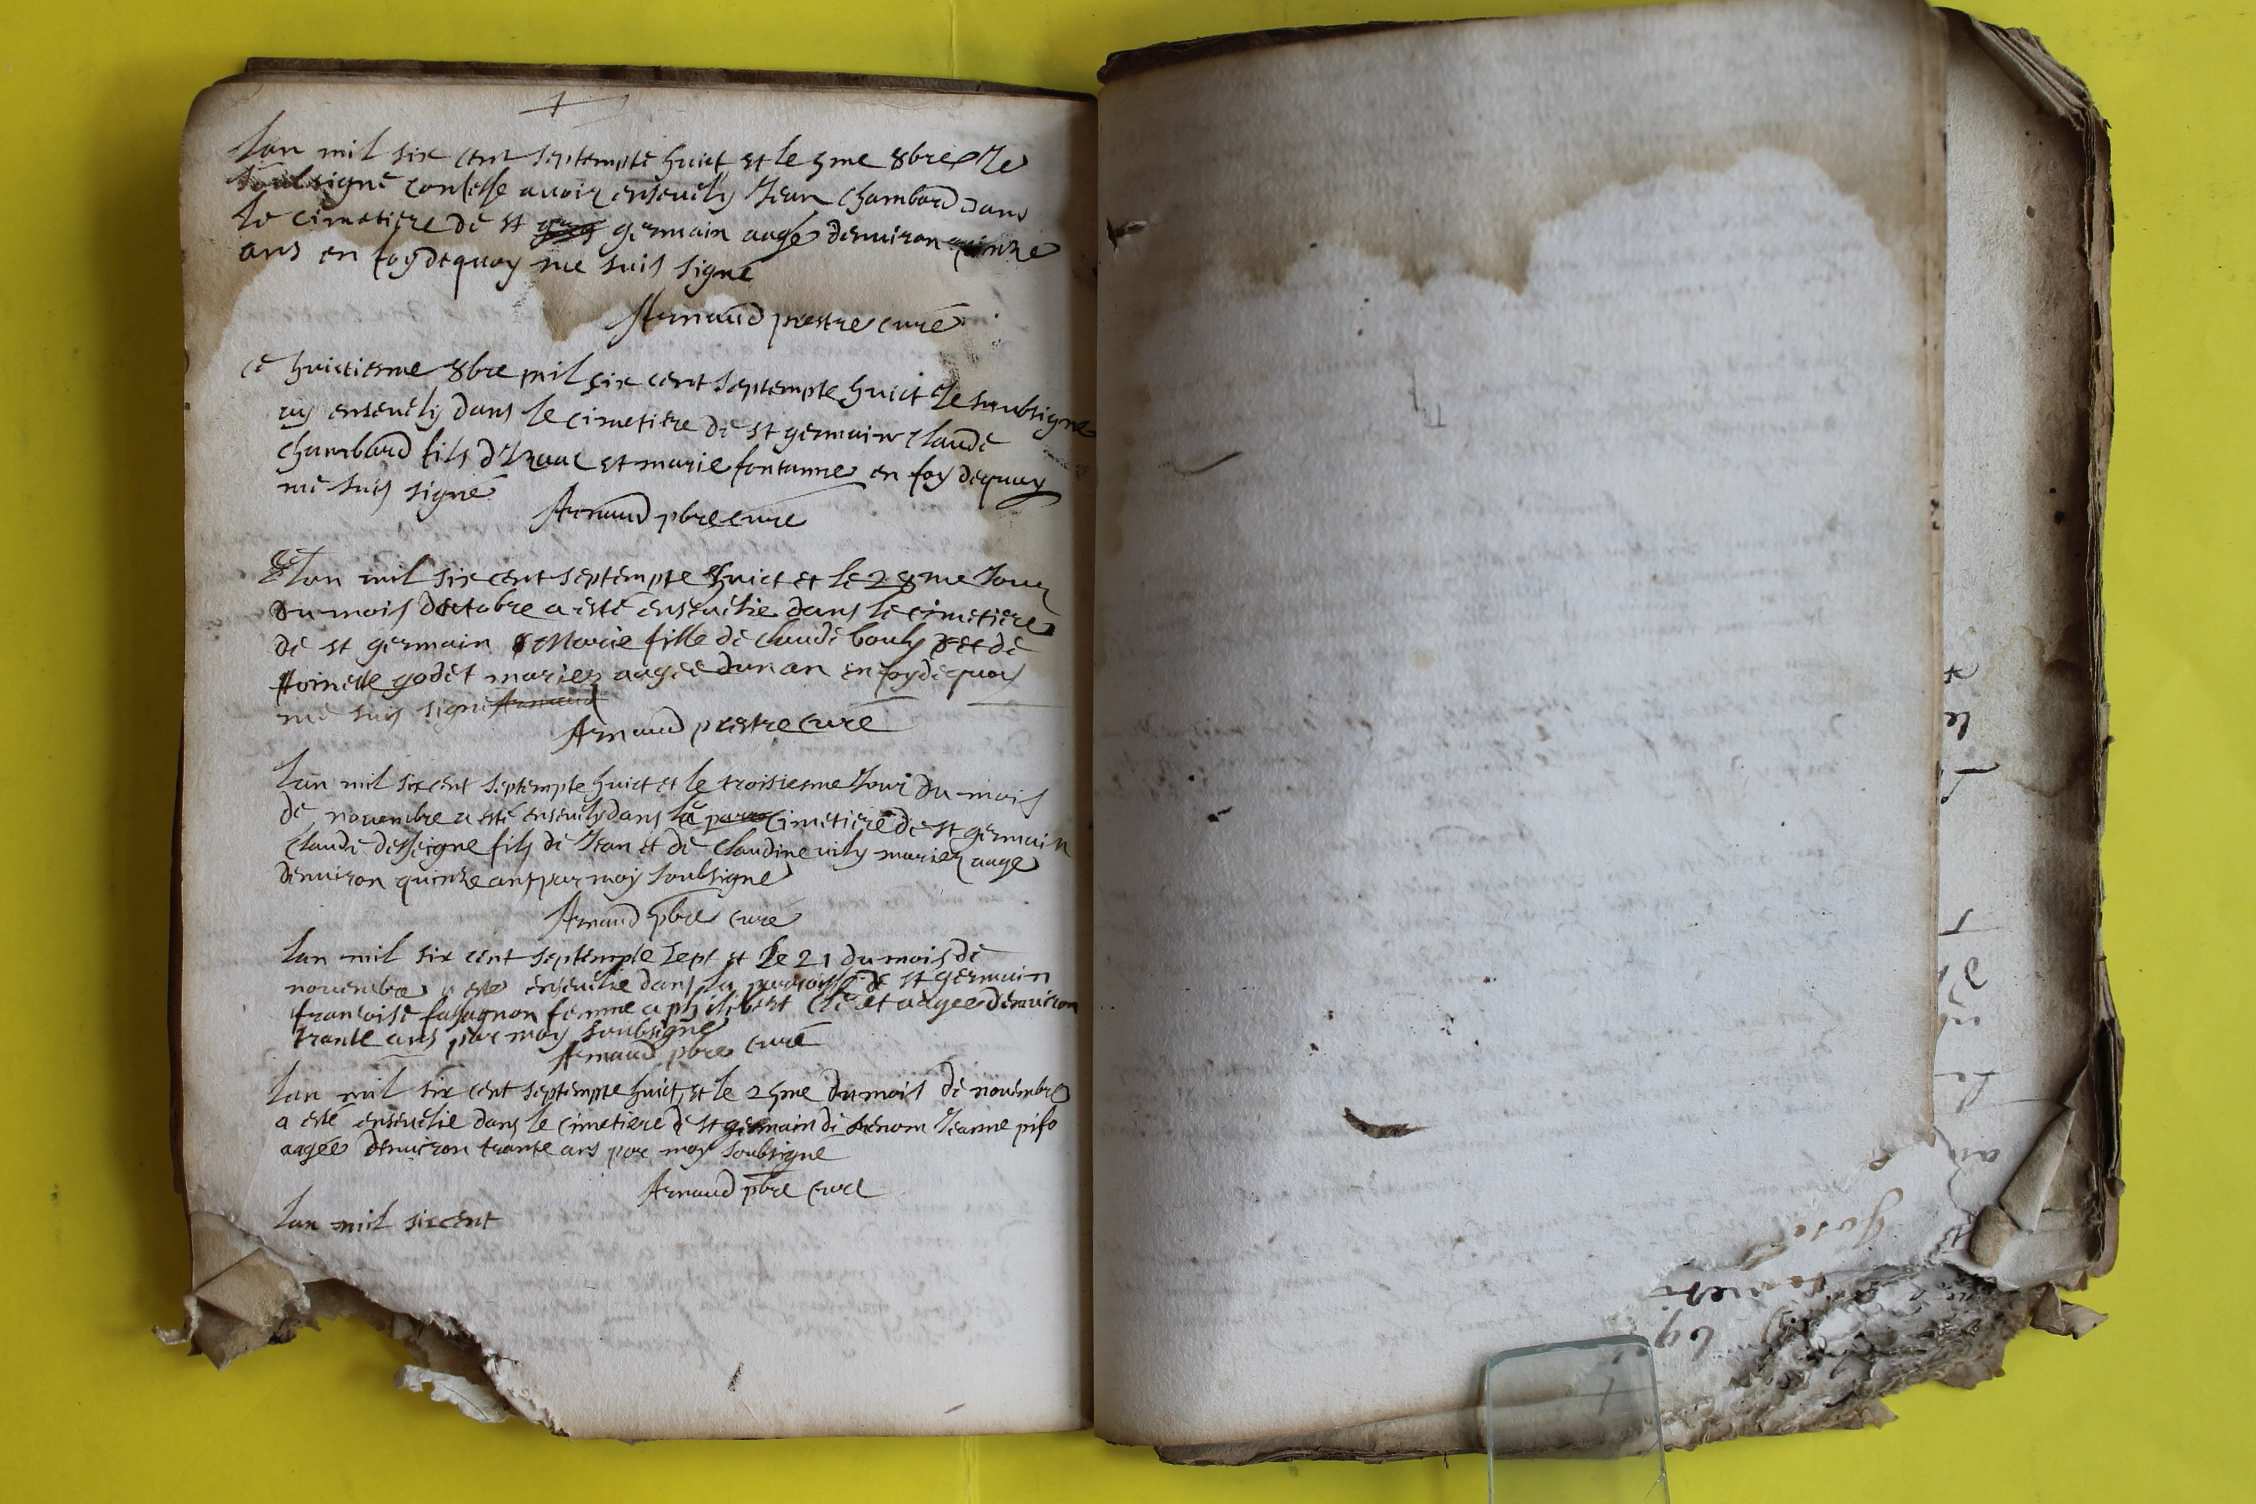 lan mil six cent septempte huict et le 5me 8bre Je
soubsigné confesse avoir ensevely Jean Chambard dans
le cimetiere de st germain aagé denviron quinze
ans en foy dequoy me suis signé
Arnaud prestre curé
ce huictiesme 8bre mil six cent septempte huict Je soubsigne
ay ensevely dans le cimetiere de st germain Claude
Chambard fils dIzaac et marie fontanne en foy dequoy
me suis signé
Arnaud pbre curé
lan mil six cent septempte huict et le 28me Jour
du mois doctobre a esté ensevelie dans le cimetiere
de st germain Marie fille de Claude bouly et de
Toinette godet mariez aagée dun an en foy dequoy
me suis signé Arnaud
Arnaud prestre curé
lan mil six cent septempte huict et le troisiesme Jour du mois
de novembre a esté ensevely dans la paro cimetiere de st germain
Claude desseigne fils de Jean et de Claudine vily mariez aage
denviron quinze ans par moy soubsigné
Arnaud pbre curé
lan mil six cent septempte sept et le 21 du mois de
novembre a esté ensevelie dans la paroisse de st germain
francoise femme a philibert et aagee denviron
trante ans par moy soubsigné
Arnaud pbre curé
lan mil six cent septempte huict et le 25me du mois de novembre
a esté ensevelie dans le cimetiere de st germain Jeanne
aagée denviron trante ans par moy soubsigne
Arnaud pbre curé
lan mil six cent